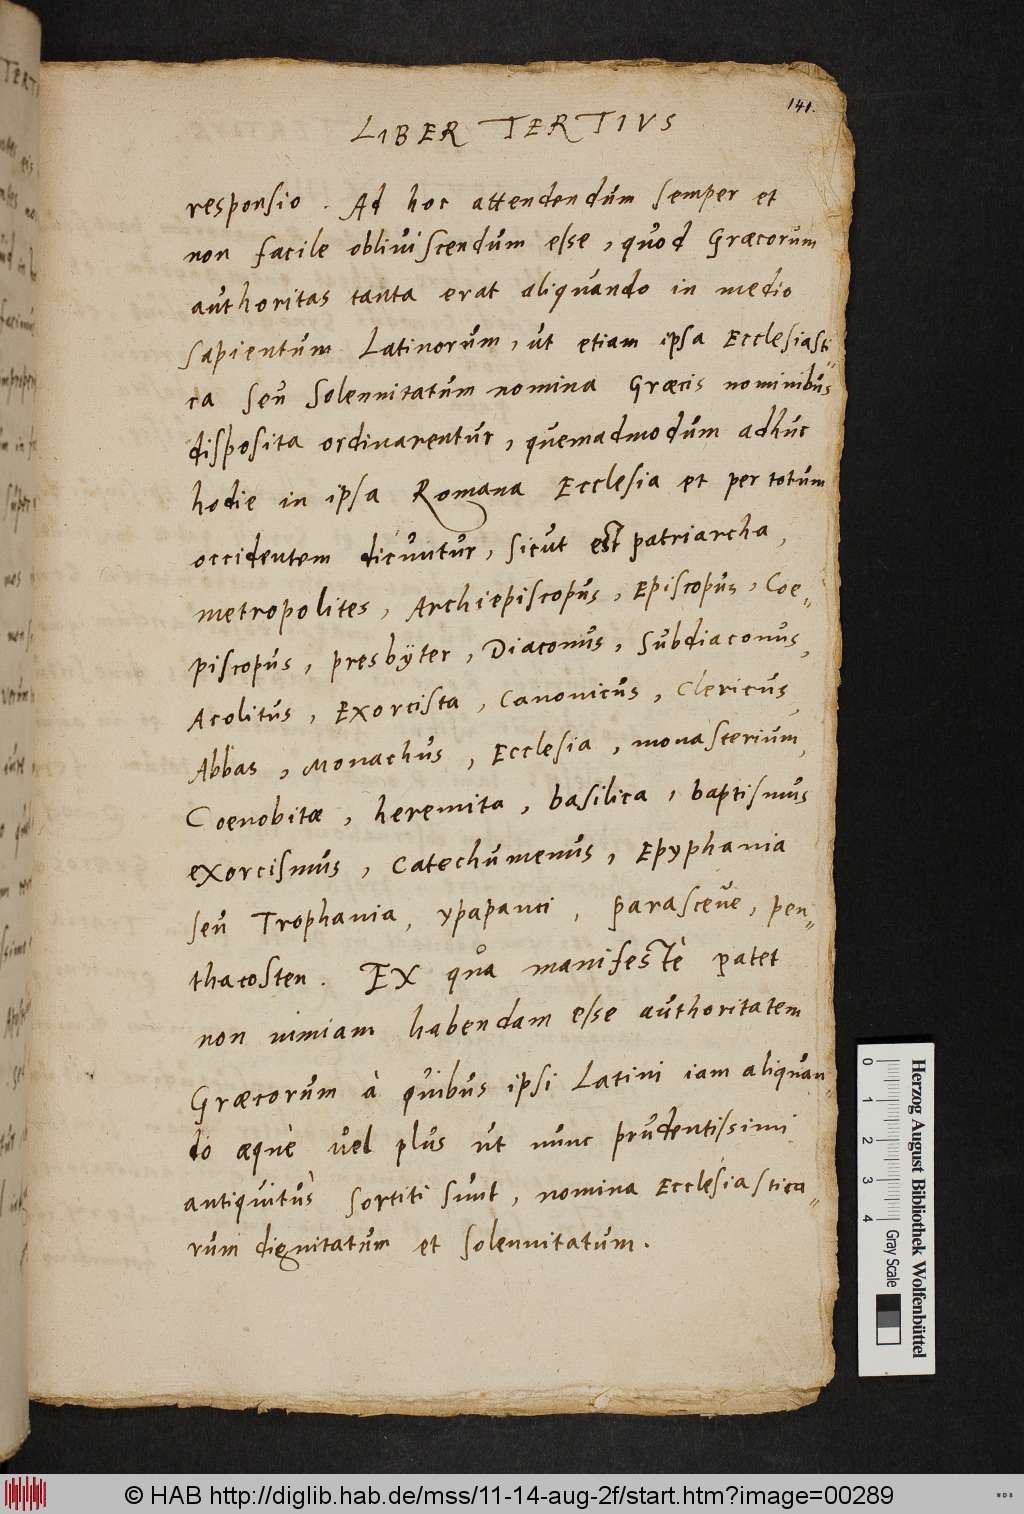 141.
LIBER TERTIVS
responsio. Ad hoc attendendum semper et
non facile obliuiscendum esse, quod Græcorum
authoritas tanta erat aliquando in medio
sapientum Latinorum, ut etiam ipsa Ecclesiasti„
ca seu solennitatum nomina Græcis nominibus
disposita ordinarentur, quemadmodum adhuc
hodie in ipsa Romana Ecclesia et per totum
occidentem dicuntur, sicut est patriarcha,
metropolites, Archiepiscopus, Episcopus, Coe„
piscopus, presbÿter, Diaconus, Subdiaconus,
Acolitus, Exorcista, Canonicus, Clericus,
Abbas, Monachus, Ecclesia, monasterium,
Coenobitæ, heremita, basilica, baptismus
exorcismus, Catechumenus, Epyphania
seu Trophania, ypapanti, parasceue, pen„
thacosten. Ex quo manifestè patet
non nimiam habendam esse authoritatem
Græcorum à quibus ipsi Latini iam aliquan„
do æquè uel plus ut nunc prudentissimi
antiquitùs sortiti sunt, nomina Ecclesiastica„
rum dignitatum et solennitatum.
0 1 2 3 4
Herzog August Bibliothek Wolfenbüttel
Gray Scale
© HAB http://diglib.hab.de/mss/11-14-aug-2f/start.htm?image=00289